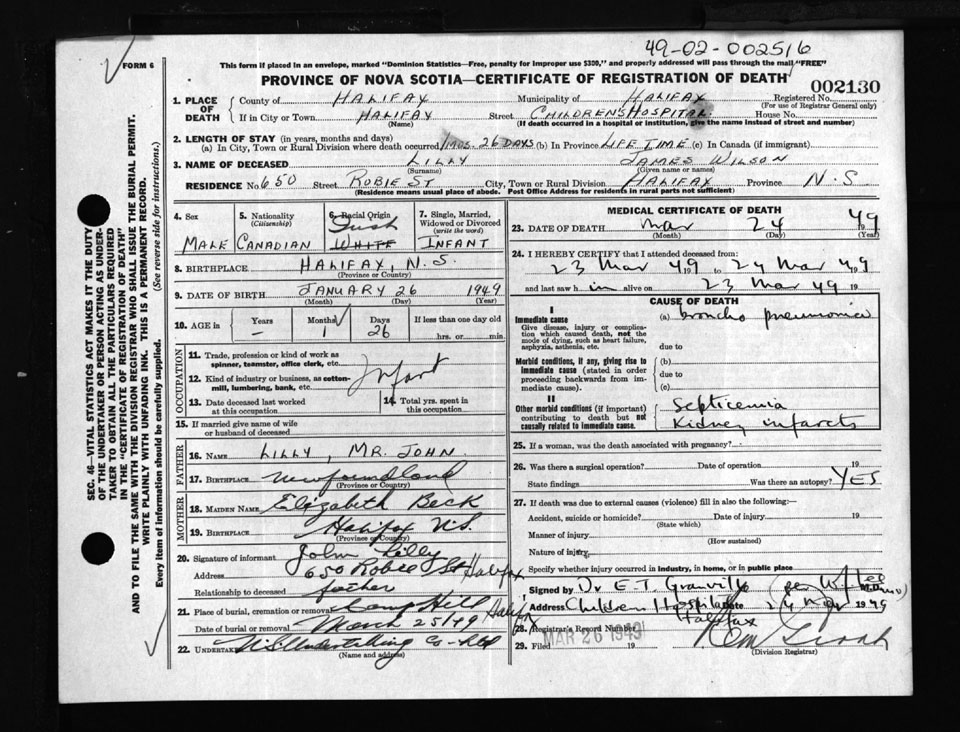 49-02-002516
FORM 6
This form if placed in an envelope, marked "Dominion Statistics—Free, penalty for improper use $300," and properly addressed will pass through the mail "FREE"
PROVINCE OF NOVA SCOTIA—CERTIFICATE OF REGISTRATION OF DEATH
002130
1. PLACE OF DEATH
County of HALIFAX Municipality of HALIFAX Registered No.
(For use of Registrar General only)
If in City or Town HALIFAX Street CHILDREN'S HOSPITAL House No.
(Name) (If death occurred in a hospital or institution, give the name instead of street and number)
2. LENGTH OF STAY (in years, months and days)
(a) In City, Town or Rural Division where death occurred 1 MOS. 26 DAYS (b) In Province LIFE TIME (c) In Canada (if immigrant)
3. NAME OF DECEASED LILLY JAMES WILSON
(Surname) (Given name or names)
RESIDENCE No. 650 Street ROBIE ST City, Town or Rural Division HALIFAX Province N.S
(Residence means usual place of abode. Post Office Address for residents in rural parts not sufficient)
4. Sex
MALE
5. Nationality (Citizenship)
CANADIAN
6. Racial Origin
Irish
WHITE
7. Single, Married, Widowed or Divorced (write the word)
INFANT
8. BIRTHPLACE HALIFAX, N.S.
(Province or Country)
9. DATE OF BIRTH JANUARY 26 1949
(Month) (Day) (Year)
10. AGE in Years Months Days If less than one day old
– 1 26 hrs. or min.
OCCUPATION
11. Trade, profession or kind of work as spinner, teamster, office clerk, etc.
12. Kind of industry or business, as cotton-mill, lumbering, bank, etc.
Infant
13. Date deceased last worked at this occupation
14. Total yrs. spent in this occupation
15. If married give name of wife or husband of deceased
FATHER
16. Name LILLY, MR. JOHN
17. Birthplace Newfoundland
(Province or Country)
MOTHER
18. Maiden Name Elizabeth Beck
19. Birthplace Halifax N.S.
(Province or Country)
20. Signature of informant John Lilly
Address 650 Robie St Halifax
Relationship to deceased father
21. Place of burial, cremation or removal Camp Hill Halifax
Date of burial or removal March 25/49
22. Undertaker N.S. Undertaking Co
(Name and address)
MEDICAL CERTIFICATE OF DEATH
23. DATE OF DEATH Mar 24 1949
(Month) (Day) (Year)
24. I HEREBY CERTIFY that I attended deceased from:
23 Mar 49 19 to 24 Mar 49 19
and last saw h im alive on 23 Mar 49 19
CAUSE OF DEATH
I
Immediate cause
Give disease, injury or complication which caused death, not the mode of dying, such as heart failure, asphyxia, asthenia, etc.
(a) broncho pneumonia
due to
Morbid conditions, if any, giving rise to immediate cause (stated in order proceeding backwards from immediate cause).
(b)
due to
(c)
II
Other morbid conditions (if important) contributing to death but not causally related to immediate cause.
Septicemia
Kidney infarcts
25. If a woman, was the death associated with pregnancy?
26. Was there a surgical operation? Date of operation 19
State findings Was there an autopsy? YES
27. If death was due to external causes (violence) fill in also the following:—
Accident, suicide or homicide? Date of injury 19
(State which)
Manner of injury
(How sustained)
Nature of injury
Specify whether injury occurred in industry, in home, or in public place
Signed by Dr E. T. Granville
Address Children Hospital Date 24 Mar 1949
Halifax
28. Registrar's Record Number
MAR 26 1949
29. Filed 19
(Division Registrar)
SEC. 46—VITAL STATISTICS ACT MAKES IT THE DUTY
OF THE UNDERTAKER OR PERSON ACTING AS UNDER-
TAKER TO OBTAIN ALL THE PARTICULARS REQUIRED
IN THE "CERTIFICATE OF REGISTRATION OF DEATH"
AND TO FILE THE SAME WITH THE DIVISION REGISTRAR WHO SHALL ISSUE THE BURIAL PERMIT.
WRITE PLAINLY WITH UNFADING INK. THIS IS A PERMANENT RECORD.
Every item of information should be carefully supplied. (See reverse side for instructions.)